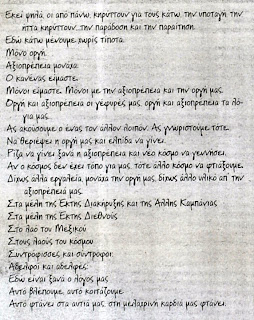 Εκεί ψηλά, οι από πάνω, κηρύττουν για τους κάτω, την υποταγή, την
ήττα κηρύττουν, την παράδοση και την παραίτηση.
Εδώ κάτω μένουμε χωρίς τίποτα.
Μόνο οργή.
Αξιοπρέπεια μονάχα.
Ο κανένας είμαστε.
Μόνοι είμαστε. Μόνοι με την αξιοπρέπεια και την οργή μας.
Οργή και αξιοπρέπεια οι γέφυρές μας, οργή και αξιοπρέπεια τα λό-
για μας.
Ας ακούσουμε ο ένας τον άλλον λοιπόν. Ας γνωριστούμε τότε.
Να θεριέψει η οργή μας και ελπίδα να γίνει.
Ρίζα να γίνει ξανά η αξιοπρέπεια και νέο κόσμο να γεννήσει.
Αν ο κόσμος δεν έχει τόπο για μας, τότε άλλο κόσμο να φτιάξουμε.
Δίχως άλλα εργαλεία, μονάχα την οργή μας, δίχως άλλο υλικό απ' την
αξιοπρέπειά μας.
Στα μέλη της Έκτης Διακήρυξης και της Άλλης Καμπάνιας
Στα μέλη της Έκτης Διεθνούς
Στο λαό του Μεξικού
Στους λαούς του κόσμου
Συντρόφισσες και σύντροφοι:
Αδελφοί και αδελφές:
Εδώ είναι ξανά ο λόγος μας
Αυτό βλέπουμε, αυτό κοιτάζουμε
Αυτό φτάνει στα αυτιά μας, στη μελαχρινή καρδιά μας φτάνει.